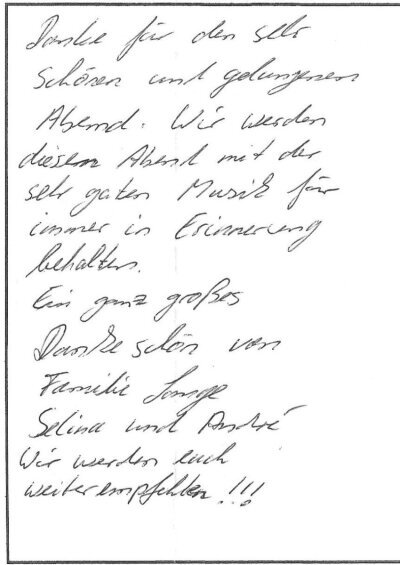 Danke für den sehr
schönen und gelungenen
Abend. Wir werden
diesen Abend mit der
sehr guten Musik für
immer in Erinnerung
behalten.
Ein ganz großes
Dankeschön von
Familie
Selina und André
Wir werden euch
weiterempfehlen!!!